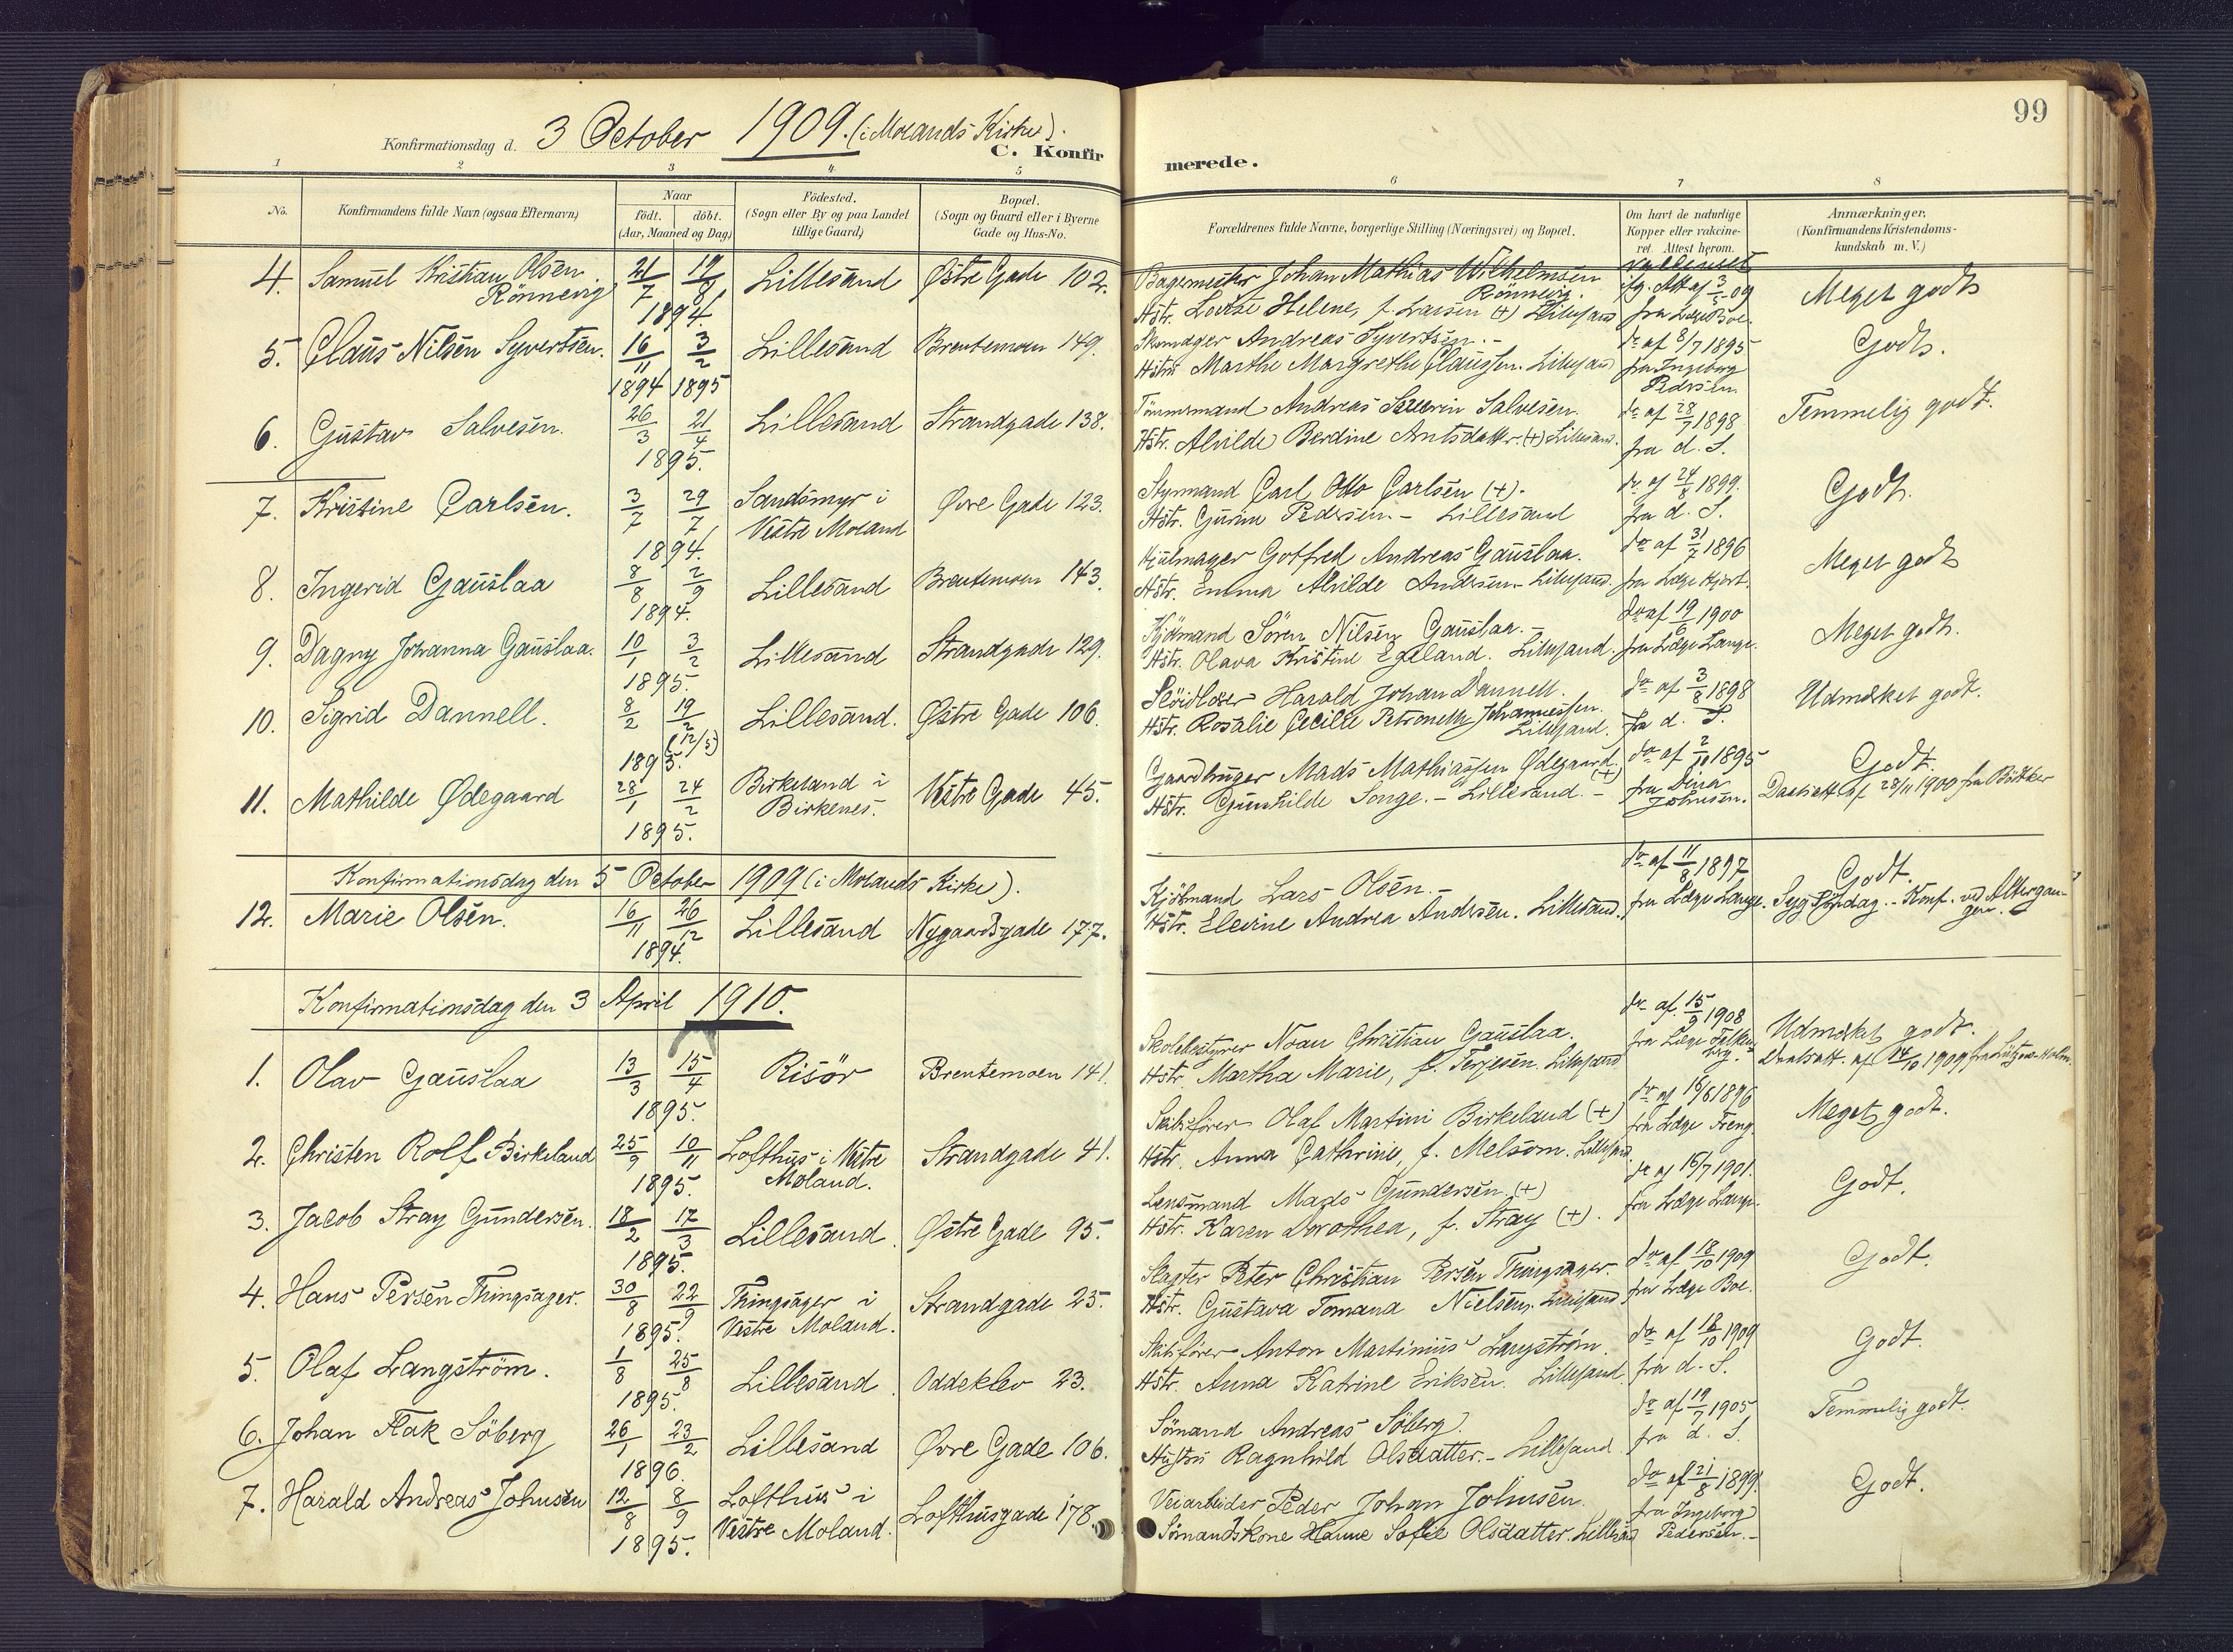 99
Konfirmationsdag d. 3 October 1909. (i Molands Kirke).
C. Konfirmerede.
1 2 3 4 5 6 7 8
No.
Konfirmandens fulde Navn (ogsaa Efternavn)
Naar
födt. döbt.
(Aar, Maaned og Dag)
Födested.
(Sogn eller By og paa Landet
tillige Gaard)
Bopæl.
(Sogn og Gaard eller i Byerne
Gade og Hus-No.
Forældrenes fulde Navne, borgerlige Stilling (Næringsvei) og Bopæl.
Om havt de naturlige
Kopper eller vakcine-
ret. Attest herom.
Anmærkninger.
(Konfirmandens Kristendoms-
kundskab m. V.)
4. Samuel Kristian Olsen 21/7 19/8 Lillesand Østre Gade 102. Bagermester Johan Mathias Wilhelmsen
Rönnevig 1894. Rönnevig.
Hstr. Lovise Helene, f. Larsen (+) Lillesand
Meget godt
5. Claus Nilsen Syvertsen. 16/11 3/2 Lillesand Brentemoen 149. Skomager Andreas Syvertsen. - do af 8/7 1895 Godt.
1894 1895 Hstru Marthe Margrethe Claussen. Lillesand fra Ingeborg
Pedersen
6. Gustav Salvesen. 26/3 21/4 Lillesand Strandgade 138. Tömmermand Andreas Severin Salvesen. do af 28/7 1898 Temmelig godt.
1895. Hstr. Alvilde Berdine Antsdatter (+) Lillesand. fra d. S.
7. Kristine Carlsen. 3/7 29/7 Sandsmyr i Øvre Gade 123. Styrmand Carl Otto Carlsen (+). do af 24/8 1899. Godt.
1894. Vestre Moland Hstr. Gurine Pedersen. - Lillesand fra d. S.
8. Ingerid Gauslaa 8/8 2/9 Lillesand Brentemoen 143. Hjulmager Gotfred Andreas Gauslaa. do af 31/7 1896 Meget godt
1894. Hstr. Emma Alvilde Andersen - Lillesand. fra Læge Hjort.
9. Dagny Johanna Gauslaa. 10/1 3/2 Lillesand Strandgade 129. Kjömand Sören Nilsen Gauslaa. - do af 19/6 1900 Meget godt.
1895. Hstr. Olava Kristine Egeland. Lillesand. fra Læge Lange.
10. Sigrid Dannell. 8/2 19/2 Lillesand. Østre Gade 106. Harald Johan Dannell. do af 3/8 1898 Udmærket godt.
(12/5) 1895. Hstr. Rosalie Cecilie Petronelle Johannessen. Lillesand. fra d. S.
11. Mathilde Ødegaard 28/1 24/2 Birkeland i Vestre Gade 45. Gaardbruger Mads Mathiassen Ødegaard. (+) do af 2/10 1895 Godt.
1895. Birkenes. Hstr. Gunhilde Songe. - Lillesand. - fra Dina Johnsen. Daabsatt. af 28/11 1900 fra Bödtker
Konfirmationsdag den 5 October 1909 (i Molands Kirke).
12. Marie Olsen. 16/11 26/12 Lillesand Nygaardsgade 177. Kjöbmand Lars Olsen. - do af 11/8 1897 Godt.
1894. Hstr. Elevine Andrea Andersen. Lillesand. fra Læge Lange. Syg Söndag. - Konf. ved Altergangen.
Konfirmationsdag den 3 April 1910.
1. Olav Gauslaa 13/3 15/4 Risör Brentemoen 141. Skolebestyrer Noan Christian Gauslaa. do af 15/9 1908 Udmærket godt.
1895. Hstr. Martha Marie, f. Terjesen. Lillesand fra Læge Falkenberg. Daabsatt. af 14/10 1909 fra Lützow-Holm.
2. Christen Rolf Birkeland 25/9 10/11 Lofthus i Vestre Strandgade 41. Skibsförer Olaf Martini Birkeland (+) do af 16/6 1896 Meget godt.
1895. Moland. Hstr. Anna Cathrine, f. Melsom. Lillesand. fra Læge Freng.
3. Jacob Stray Gundersen. 18/2 17/3 Lillesand Østre Gade 95. Lensmand Mads Gundersen (+) do af 16/7 1901. Godt.
1895. Hstr. Karen Dorothea, f. Stray (+). fra Læge Lange.
4. Hans Persen Thingsager. 30/8 22/9 Thingsager i Strandgade 25. Slagter Peter Christian Persen Thingsager. do af 18/10 1909 Godt.
1895. Vestre Moland. Hstr. Gustava Tomana Nielsen. Lillesand fra Læge Boe.
5. Olaf Langström. 1/8 25/8 Lillesand Oddeklev 23. Skibsförer Anton Martinius Langström. do af 18/10 1909 Godt.
1895. Hstr. Anna Katrine Eriksen. Lillesand. fra d. S.
6. Johan Flak Söberg 26/1 23/2 Lillesand Øvre Gade 106. Sömand Andreas Söberg. do af 19/7 1905 Temmelig godt.
1896. Hustru Ragnhild Olsdatter. - Lillesand. fra d. S.
7. Harald Andreas Johnsen 12/8 8/9 Lofthus i Lofthusgade 178. Veiarbeider Peder Johan Johnsen. do af 21/8 1899. Godt.
1895. Vestre Moland. Sömandskone Hanne Sofie Olsdatter. Lillesand fra Ingeborg Pedersen. -